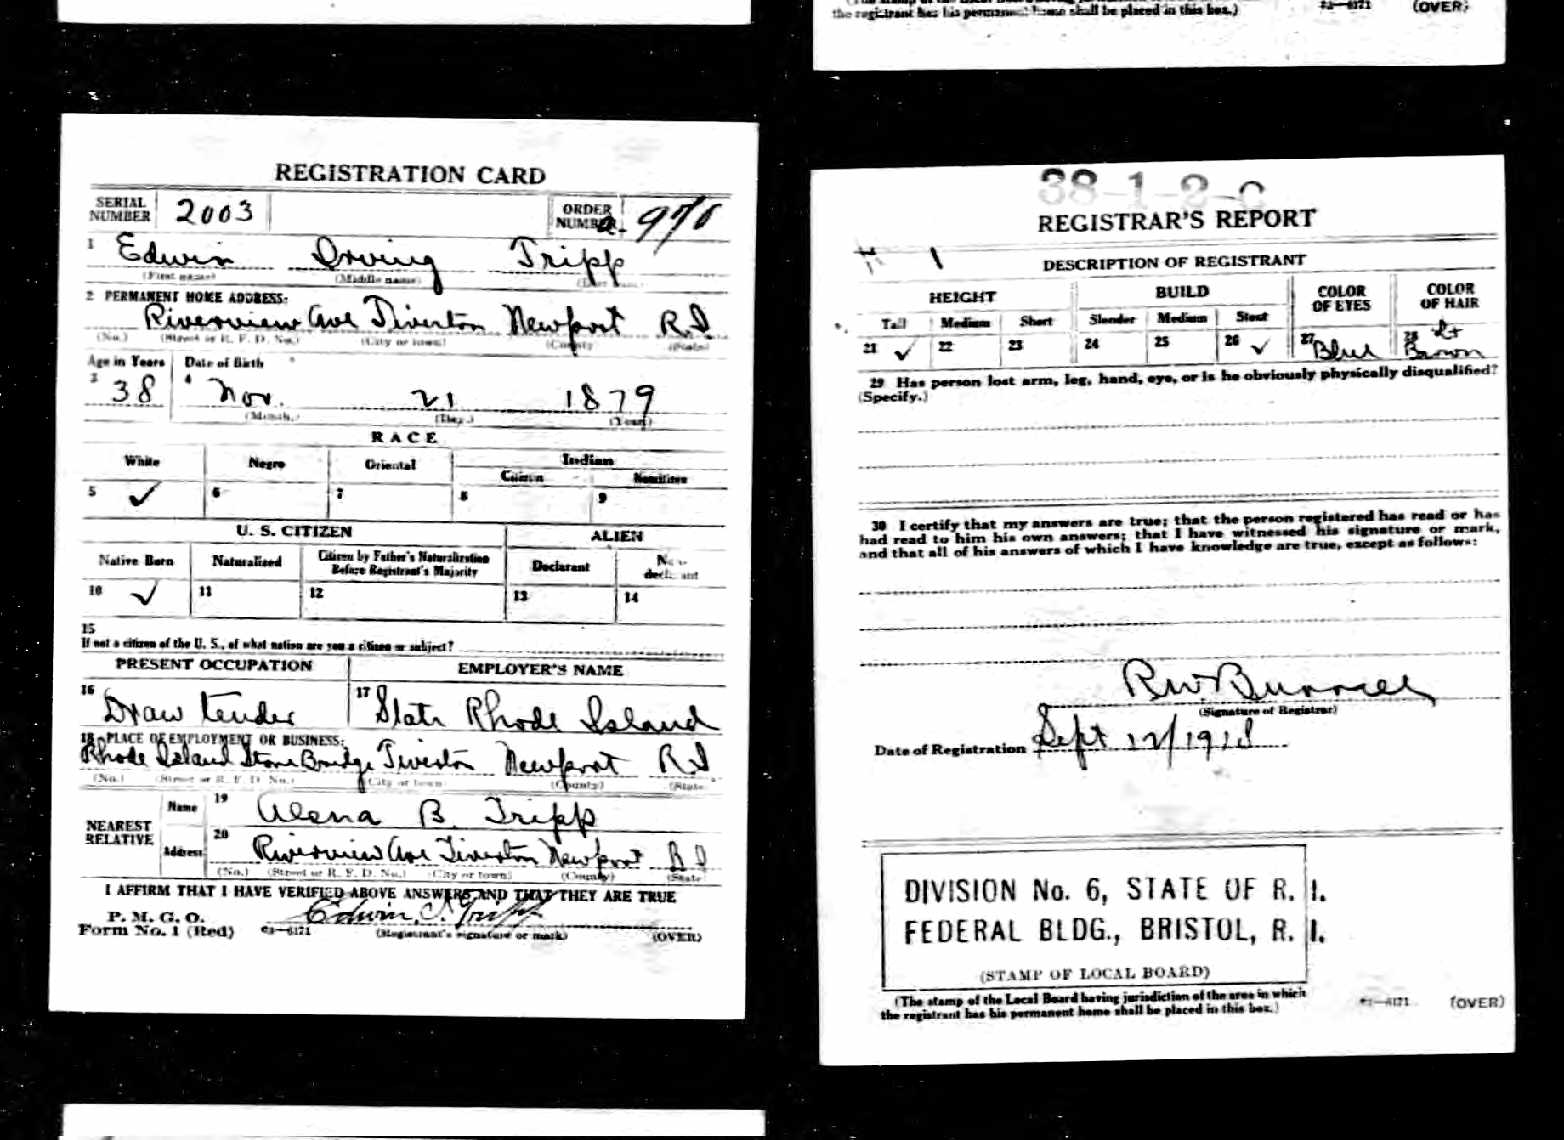 the registrant has his permanent home shall be placed in this box.) (OVER)
REGISTRATION CARD
SERIAL NUMBER 2003 ORDER NUMBER
1 Edwin Irving Tripp
(First name) (Middle name)
2 PERMANENT HOME ADDRESS:
Riverview Ave Tiverton Newport R I
(No.) (Street or R. F. D. No.) (City or town) (County) (State)
Age in Years Date of Birth
3 38 4 Nov. 21 1879
(Month.) (Day.) (Year)
RACE
White Negro Oriental Indian
Citizen Noncitizen
5 ✓ 6 7 8 9
U. S. CITIZEN ALIEN
Native Born Naturalized Citizen by Father's Naturalization Before Registrant's Majority Declarant Non-declarant
10 ✓ 11 12 13 14
15
If not a citizen of the U. S., of what nation are you a citizen or subject?
PRESENT OCCUPATION EMPLOYER'S NAME
16 Draw tender 17 State Rhode Island
18 PLACE OF EMPLOYMENT OR BUSINESS:
Rhode Island Stone Bridge Tiverton Newport R I
(No.) (Street or R. F. D. No.) (City or town) (County) (State)
NEAREST RELATIVE
Name 19 Alena B. Tripp
Address 20 Riverview Ave Tiverton Newport R I
(No.) (Street or R. F. D. No.) (City or town) (County) (State)
I AFFIRM THAT I HAVE VERIFIED ABOVE ANSWERS AND THAT THEY ARE TRUE
P. M. G. O.
Form No. 1 (Red) Edwin I. Tripp
(Registrant's signature or mark) (OVER)
38-1-2-C
REGISTRAR'S REPORT
DESCRIPTION OF REGISTRANT
HEIGHT BUILD COLOR OF EYES COLOR OF HAIR
Tall Medium Short Slender Medium Stout
21 ✓ 22 23 24 25 26 ✓ 27 Blue 28 Lt Brown
29 Has person lost arm, leg, hand, eye, or is he obviously physically disqualified?
(Specify.)
30 I certify that my answers are true; that the person registered has read or has
had read to him his own answers; that I have witnessed his signature or mark,
and that all of his answers of which I have knowledge are true, except as follows:
(Signature of Registrar)
Date of Registration Sept 12/1918
DIVISION No. 6, STATE OF R. I.
FEDERAL BLDG., BRISTOL, R. I.
(STAMP OF LOCAL BOARD)
(The stamp of the Local Board having jurisdiction of the area in which
the registrant has his permanent home shall be placed in this box.) (OVER)